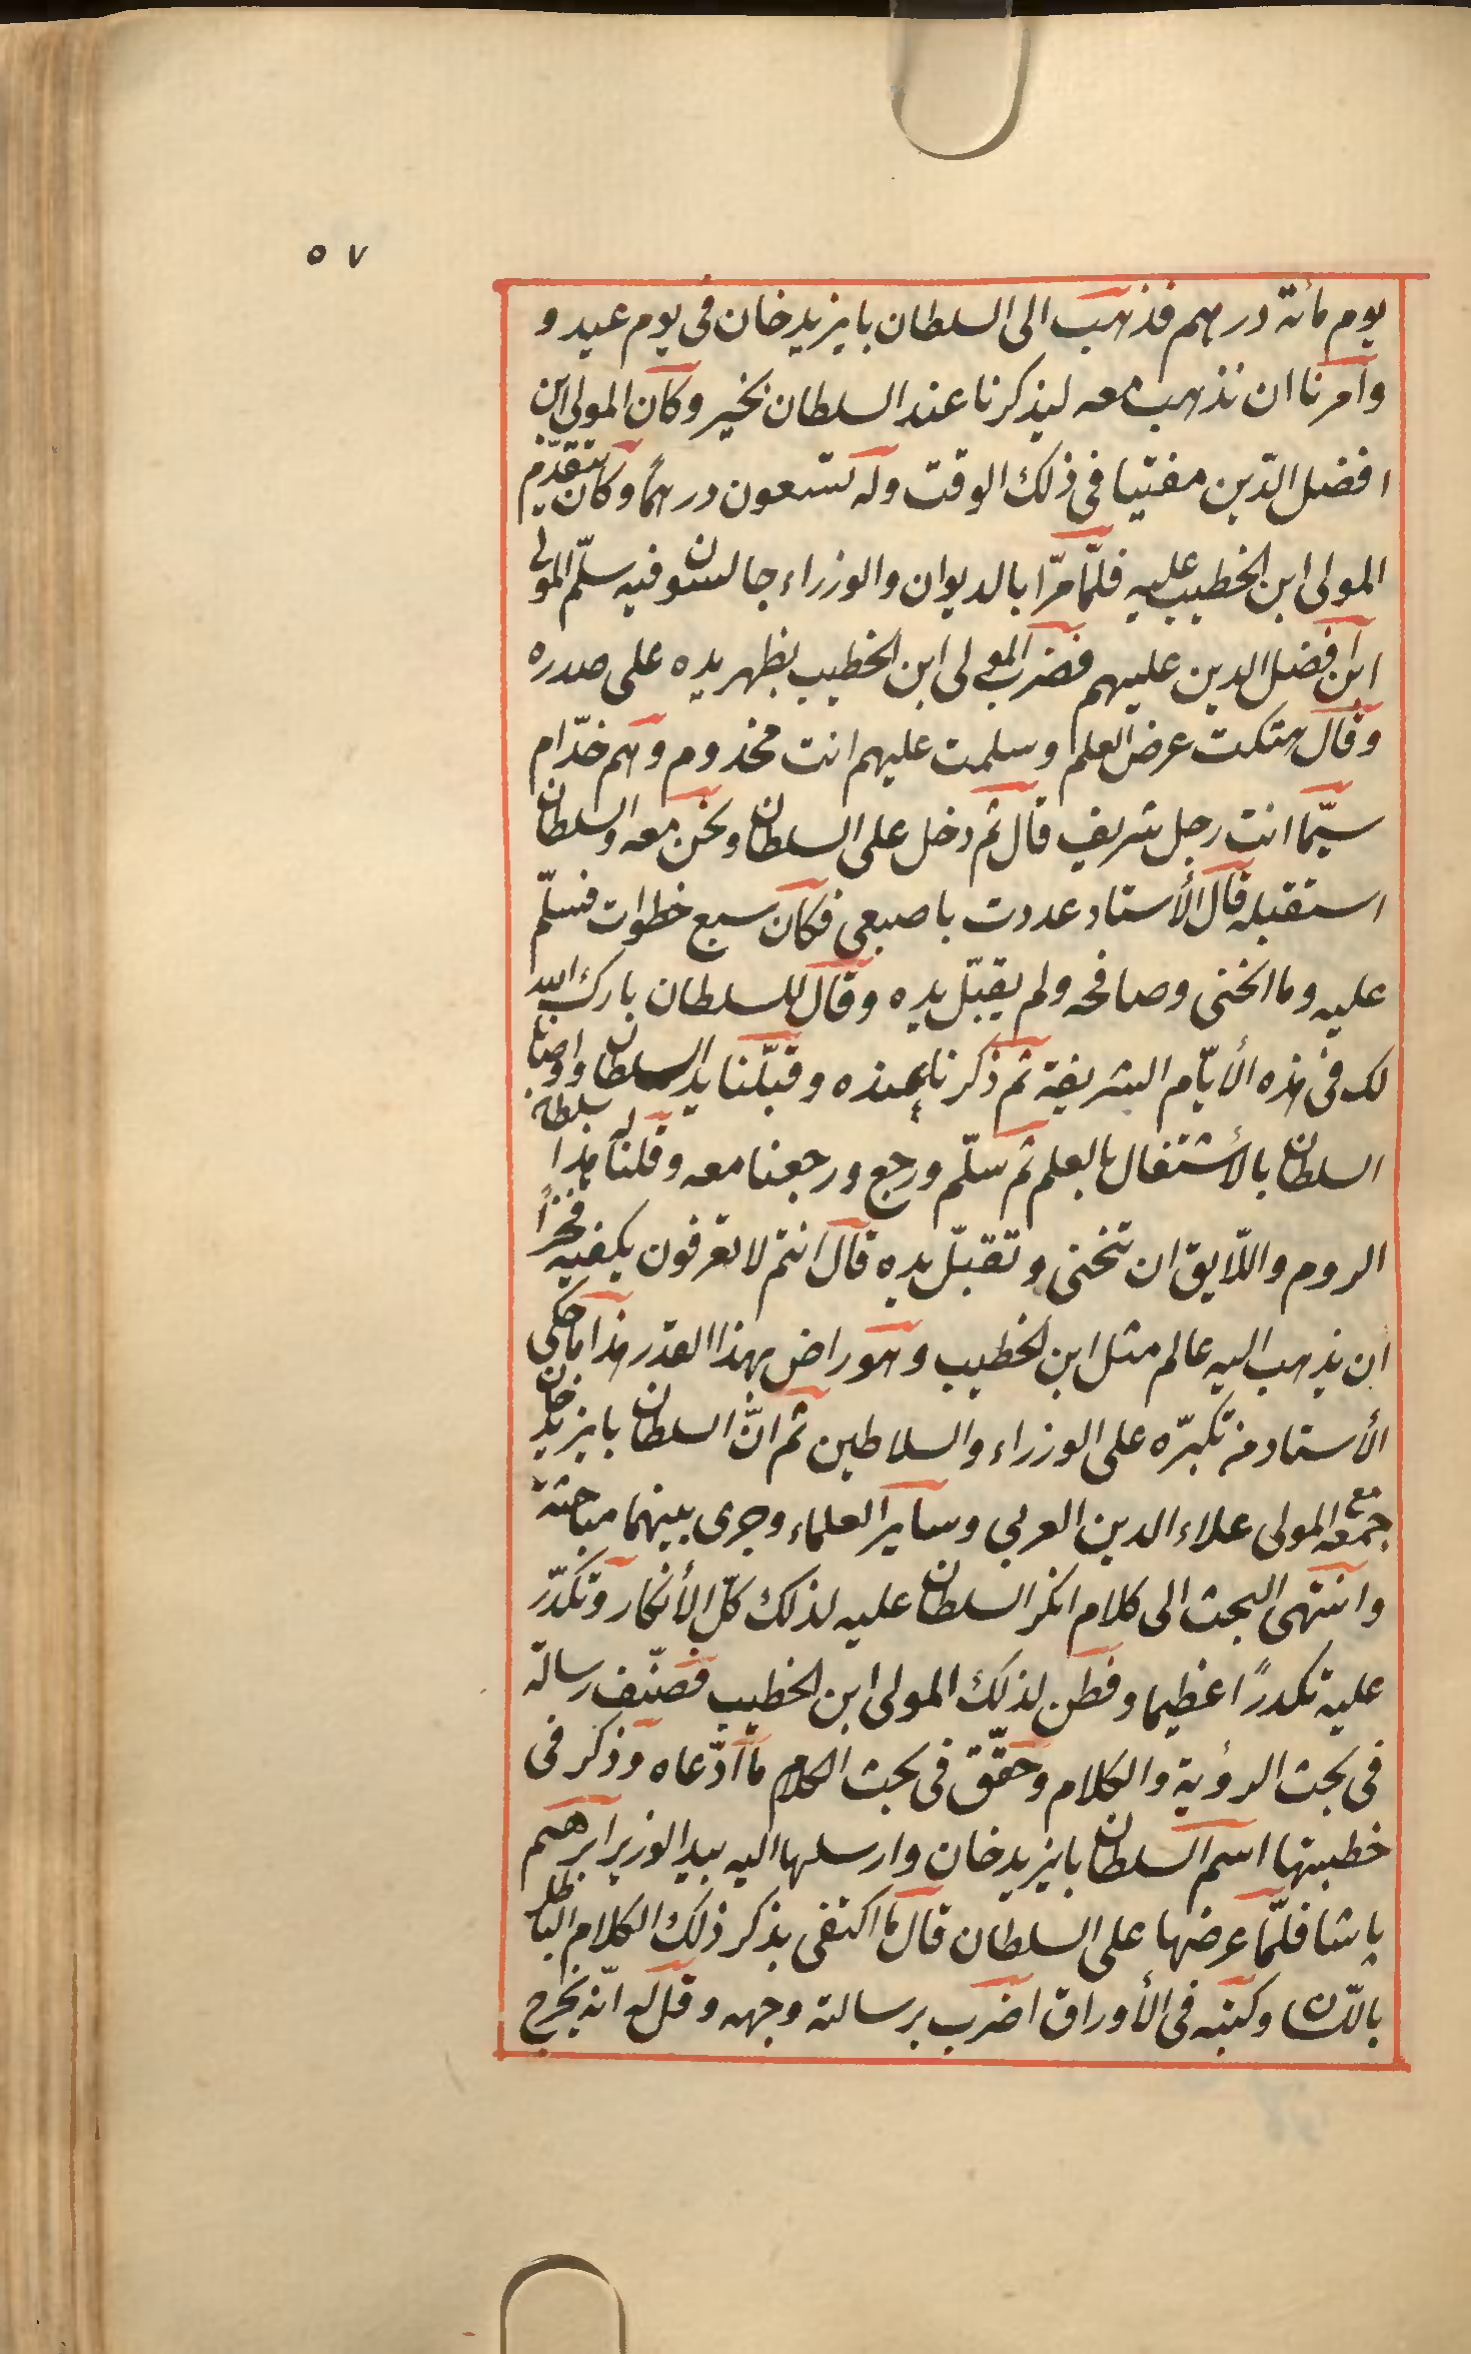 ٥٧
يوم مائة درهم فذهب الى السلطان بايزيد خان فى يوم عيد و
وامرنا ان نذهب معه ليذكرنا عند السلطان بخير وكان المولى ابن
افضل الدّين مفتيا فى ذلك الوقت وله تسعون درهمًا وكان يتقدّم
المولى ابن الخطيب عليه فلمّا مرّا بالديوان والوزراء جالسون فيه سلّم المولى
ابن افضل الدين عليهم فضرب المولى ابن الخطيب بظهر يده على صدره
وقال هتكت عرض العلم وسلمت عليهم انت مخدوم وهم خدّام
سيّما انت رجل شريف قال ثم دخل على السلطان ونحن معه والسلطان
استقبله قال الأستاد عددت باصبعى فكان سبع خطوات فسلّم
عليه وما انحنى وصافحه ولم يقبّل يده وقال للسلطان بارك الله
لك فى هذه الأيّام الشريفة ثم ذكرنا عنده وقبّلنا يد السلطان واوصانا
السلطان بالأشتغال بالعلم ثم سلّم ورجع ورجعنا معه وقلنا له هذا سلطان
الروم واللّايق ان تنحنى وتقبّل يده قال انتم لا تعرفون يكفيه فخرًا
ان يذهب اليه عالم مثل ابن الخطيب وهو راض بهذا القدر هذا ما حكى
الأستاد من تكبرّه على الوزراء والسلاطين ثم انّ السلطان بايزيد خان
جمعه مع المولى علاء الدين العربى وساير العلماء وجرى بينهما مباحثة
وانتهى البحث الى كلام انكر السلطان عليه لذلك كلّ الأنكار وتكدّر
عليه تكدرًا عظيما وفطن لذلك المولى ابن الخطيب فصنّف رسالة
فى بحث الرؤية والكلام وحقّق فى بحث الكلام ما ادّعاه وذكر فى
خطبتها اسم السلطان بايزيد خان وارسلها اليه بيد الوزير ابرهيم
پاشا فلمّا عرضها على السلطان قال ما اكتفى بذكر ذلك الكلام الباطل
باللّسان وكتبه فى الأوراق اضرب برسالته وجهه وقل له انّه يخرج